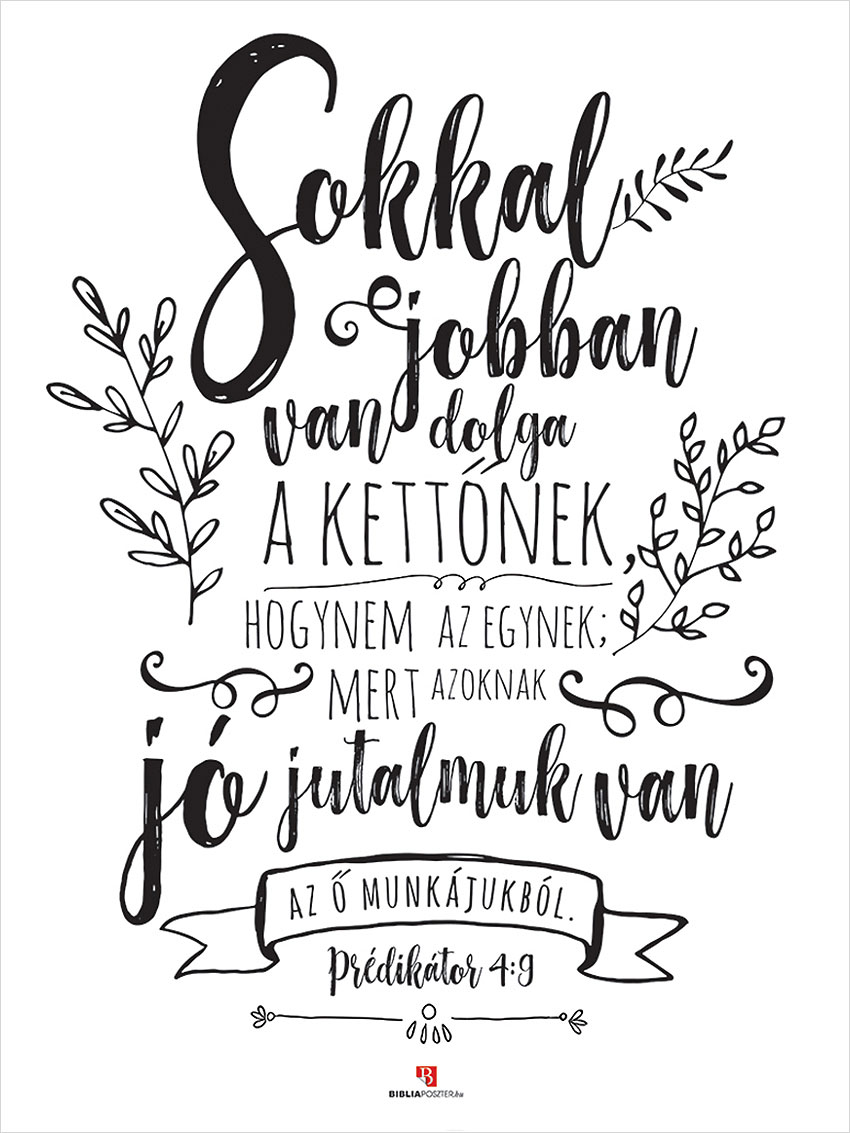 Sokkal
jobban
van dolga
A KETTŐNEK,
HOGYNEM AZ EGYNEK;
MERT AZOKNAK
jó jutalmuk van
AZ Ő MUNKÁJUKBÓL.
Prédikátor 4:9
B
BIBLIAPOSZTER.hu